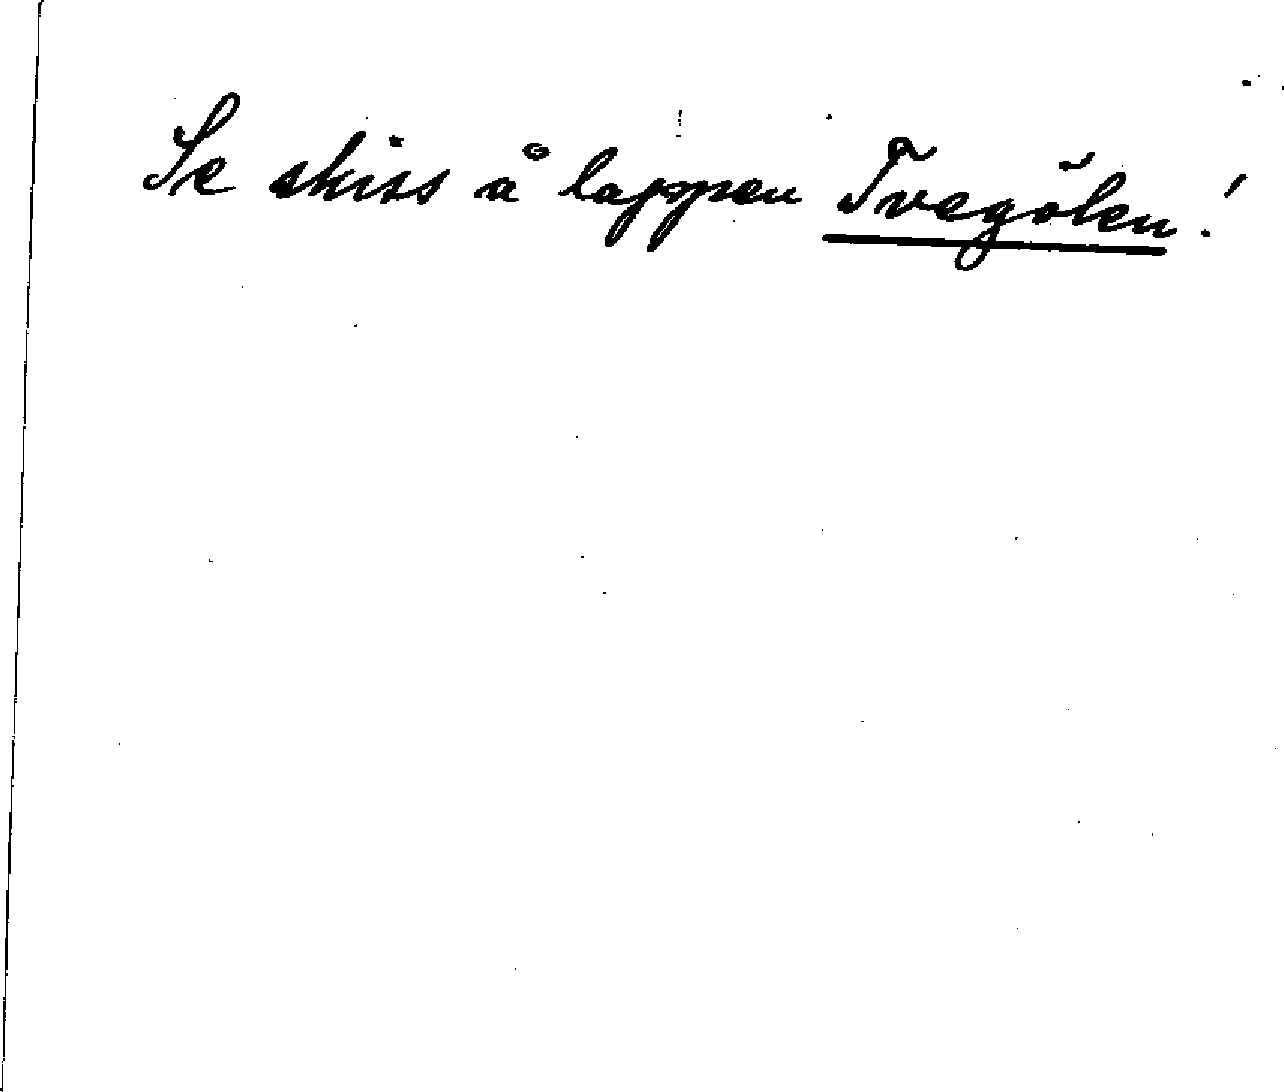 Se skiss å lappen Tvegölen!